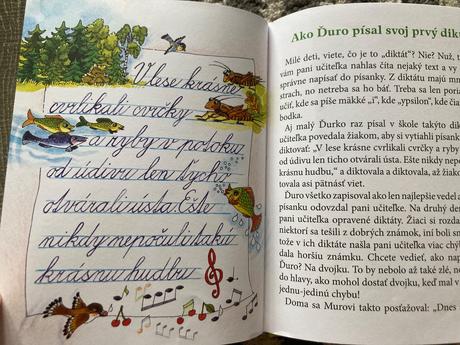 V lese krásne
cvrlikali cvrčky
a ryby v potoku
od údivu len tycho
otvárali ústa. Ešte
nikdy nepočuli takú
krásnu hudbu.
Ako Ďuro písal svoj prvý dikt
Milé deti, viete, čo je to „diktát“? Nie? Nuž, t
vám pani učiteľka nahlas číta nejaký text a vy
správne napísať do písanky. Z diktátu majú mn
strach, no netreba sa ho báť. Treba sa len pori
učiť, kde sa píše mäkké „i“, kde „ypsilon“, kde čia
bodka.
Aj malý Ďurko raz písal v škole takýto dikt
učiteľka povedala žiakom, aby si vytiahli písank
diktovať: „V lese krásne cvrlikali cvrčky a ryby
od údivu len ticho otvárali ústa. Ešte nikdy nepo
krásnu hudbu,“ a diktovala a diktovala, až žiako
tovala asi pätnásť viet.
Ďuro všetko zapisoval ako len najlepšie vedel a
písanku odovzdal pani učiteľke. Na druhý de
pani učiteľka opravené diktáty. Žiaci si rozda
niektorí sa tešili z dobrých známok, iní boli sm
tože v ich diktáte našla pani učiteľka viac chýb
dala horšiu známku. Chcete vedieť, ako nap
Ďuro? Na dvojku. To by nebolo až také zlé, ne
do hlavy, ako mohol dostať dvojku, keď mal v
jednu-jedinú chybu!
Doma sa Murovi takto posťažoval: „Dnes